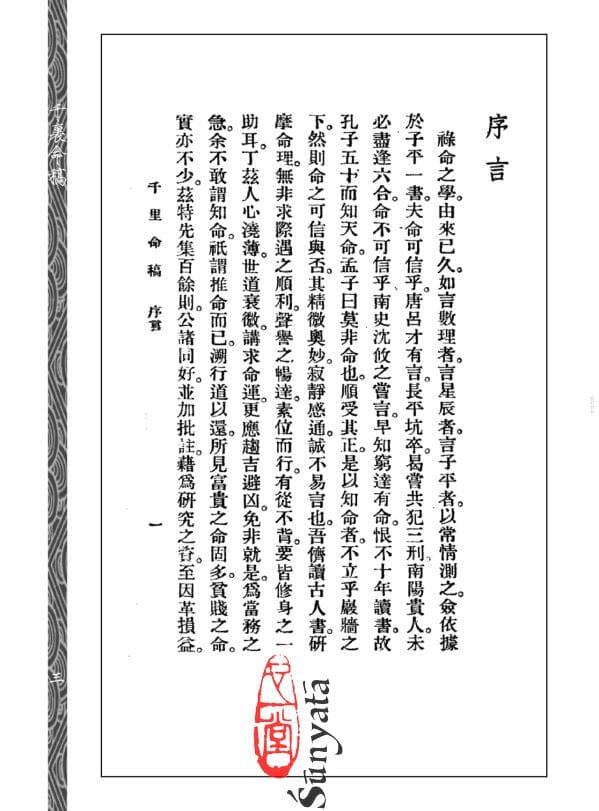 序言
祿命之學。由來已久。如言數理者。言星辰者。言子平者。以常情測之。僉依據
於子平一書。夫命可信乎。唐呂才有言。長平坑卒。曷嘗共犯三刑。南陽貴人。未
必盡逢六合。命不可信乎。南史沈攸之嘗言。早知窮達有命。恨不十年讀書。故
孔子五十而知天命。孟子曰莫非命也。順受其正。是以知命者。不立乎巖牆之
下。然則命之可信與否。其精微奧妙。寂靜感通。誠不易言也。吾儕讀古人書。研
摩命理。無非求際遇之順利。聲譽之暢達。素位而行。有從不背。要皆修身之一
助耳。丁茲人心澆薄。世道衰微。講求命運。更應趨吉避凶。免非就是。爲當務之
急。余不敢謂知命。祇謂推命而已。溯行道以還。所見富貴之命固多。貧賤之命。
實亦不少。茲特先集百餘則。公諸同好。並加批註。藉爲研究之資。至因革損益。
千里命稿 序言
一
千裏命稿
三
Śūnyatā